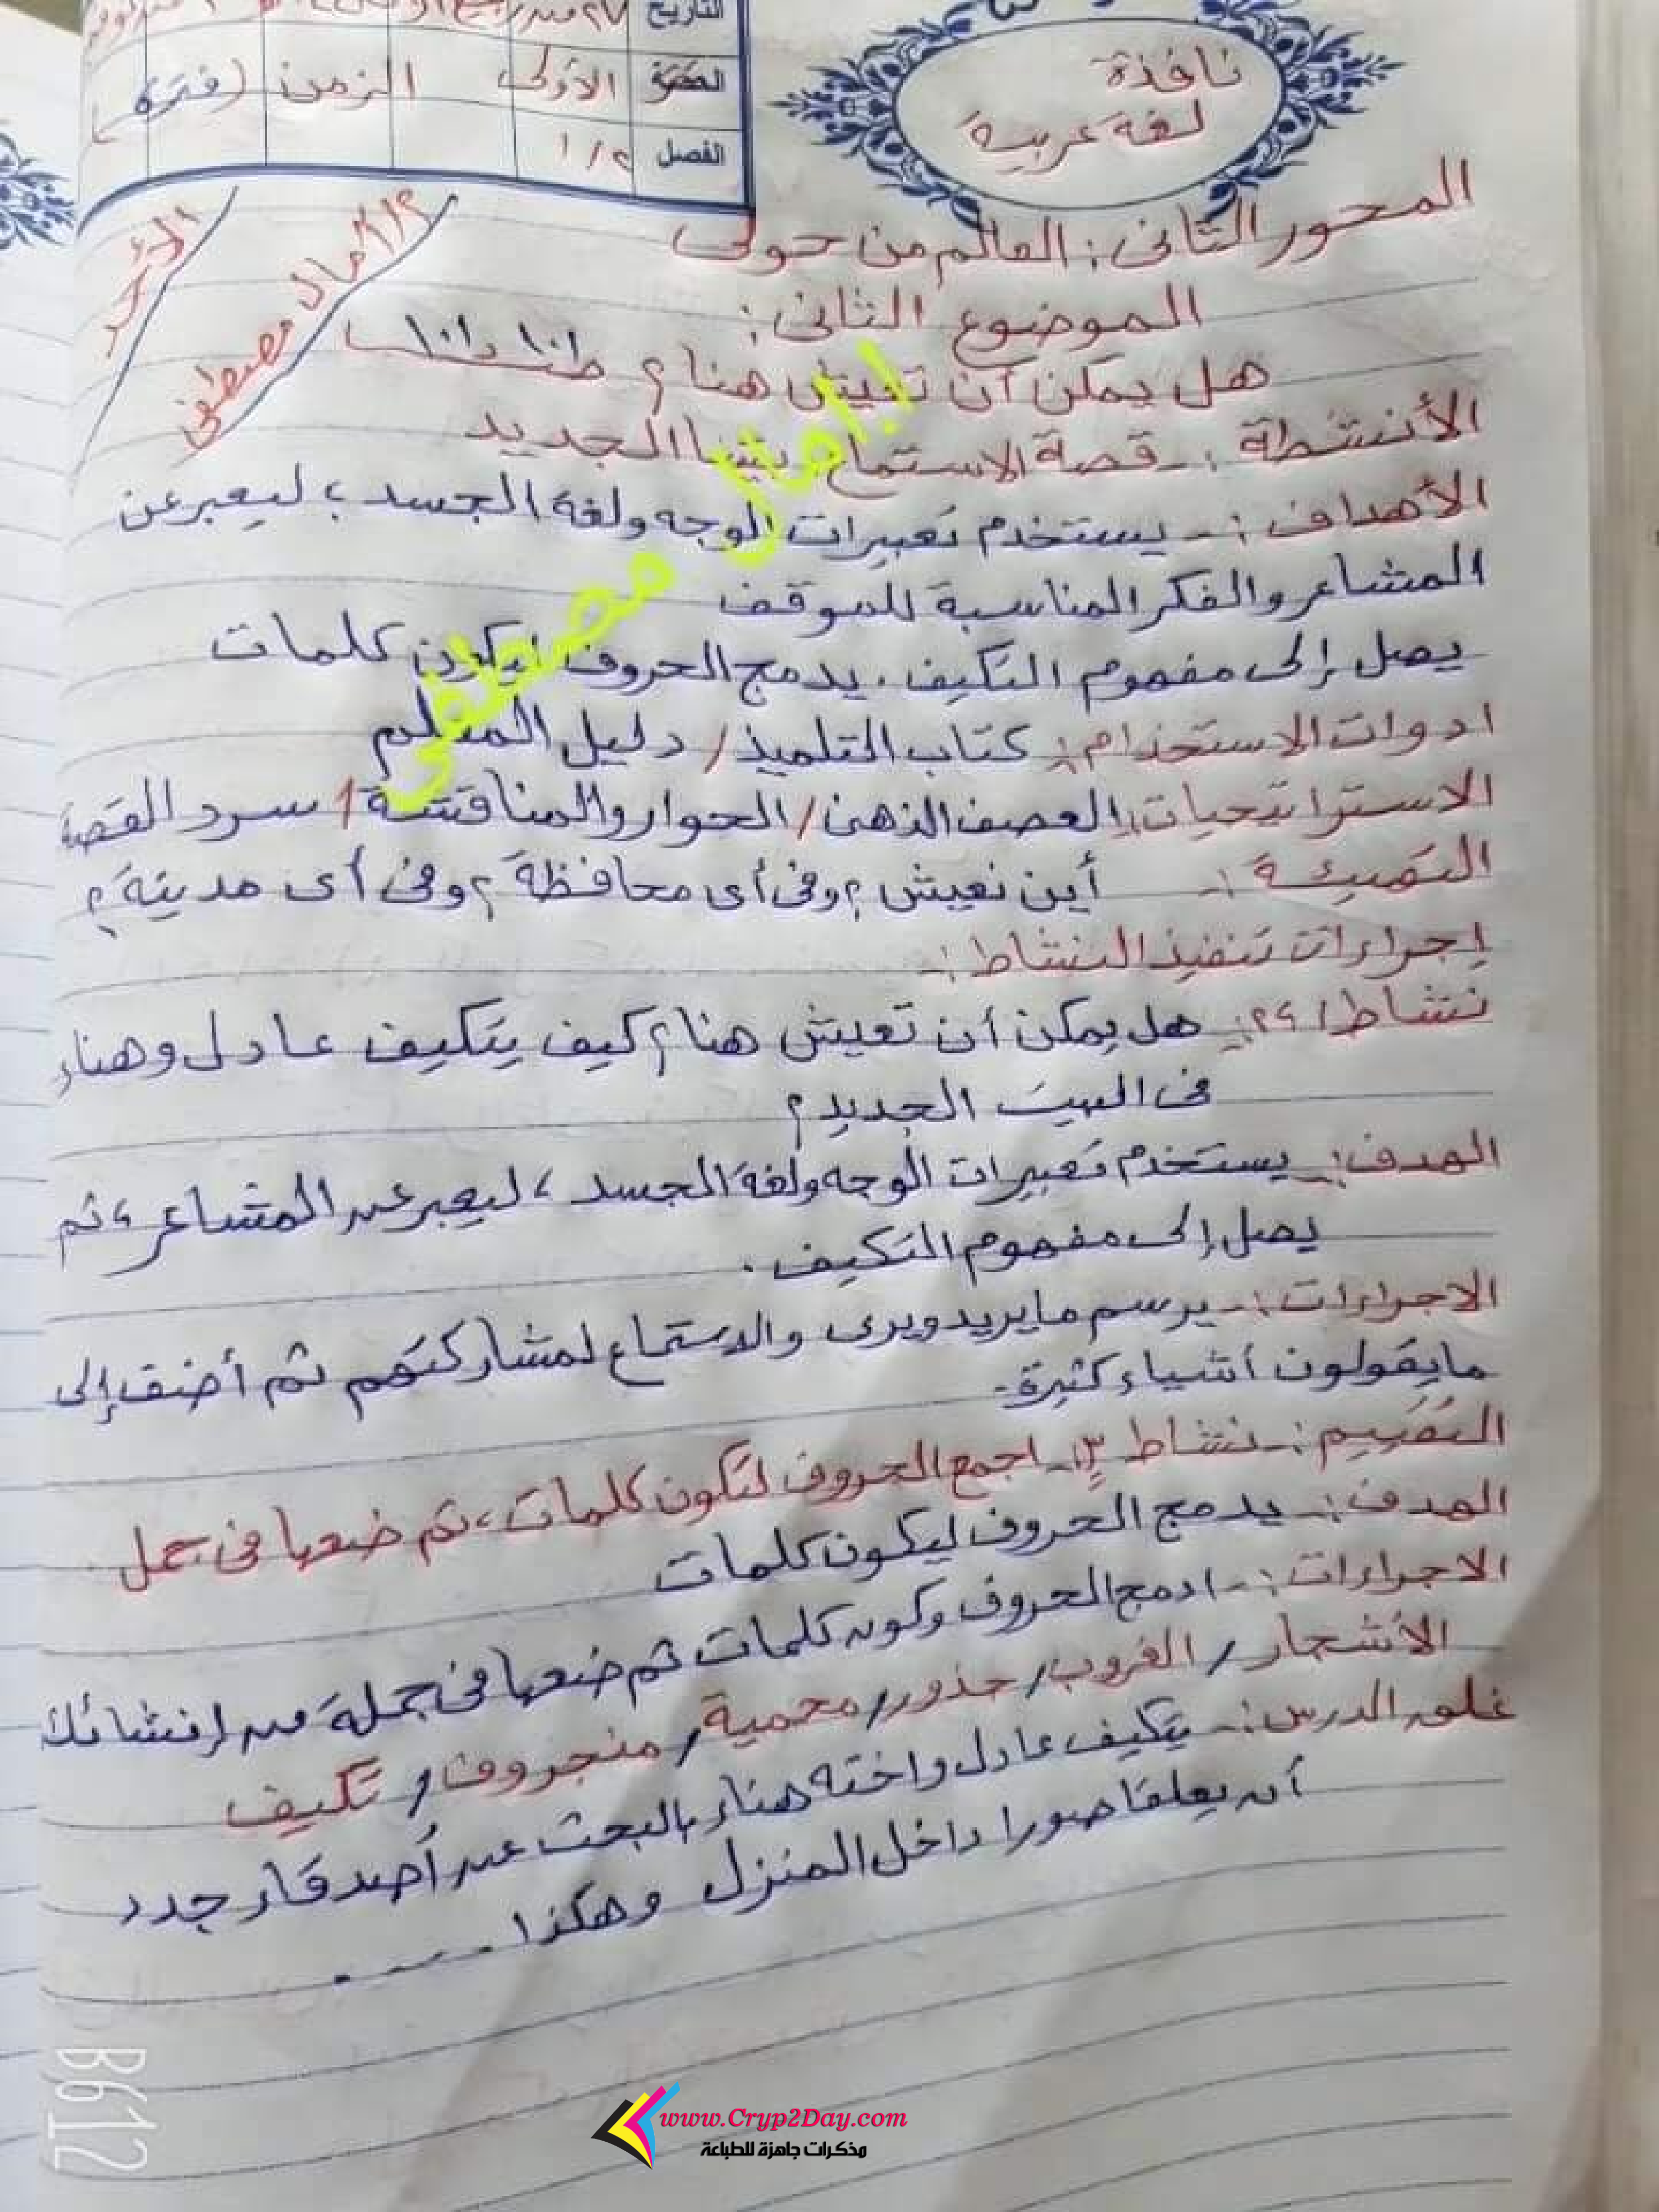 التاريخ ٢٧
الحصة الأولى الزمن (فترة)
الفصل ١/٢
نافذة
لغة عربية
المحور الثانى: العالم من حولى
الموضوع الثانى:
هل يمكن أن تعيش هنا؟
أ/ امال مصطفى
الأنشطة:- قصة الاستماع بيتنا الجديد
الأهداف:- يستخدم تعبيرات الوجه ولغة الجسد، ليعبر عن
المشاعر والفكر المناسبة للموقف
يصل إلى مفهوم التكيف. يدمج الحروف ليكون كلمات
ادوات الاستخدام: كتاب التلميذ/ دليل المعلم
الاستراتيجيات: العصف الذهنى/ الحوار والمناقشة/ سرد القصة
التهيئة:- أين نعيش؟ وفى أى محافظة؟ وفى أى مدينة؟
إجراءات تنفيذ النشاط:-
نشاط ١، ٢: هل يمكن أن تعيش هنا؟ كيف يتكيف عادل وهناء
فى البيت الجديد؟
الهدف:- يستخدم تعبيرات الوجه ولغة الجسد، ليعبر عن المشاعر، ثم
يصل إلى مفهوم التكيف.
الاجراءات:- يرسم ما يريد ويرى والاستماع لمشاركتهم ثم أضف إلى
ما يقولون أشياء كثيرة.
التقييم:- نشاط ٣:- اجمع الحروف لتكون كلمات، ثم ضعها فى جمل
الهدف:- يدمج الحروف ليكون كلمات
الاجراءات:- ادمج الحروف وكون كلمات ثم ضعها فى جملة من إنشائك
الأشجار/ الغروب/ جذور/ محمية/ منجروف/ تكيف
غلق الدرس:- يتكيف عادل واخته هناء بالبحث عن أصدقاء جدد
أن يعلقا صورا داخل المنزل وهكذا....
امال مصطفى
B612
www.Cryp2Day.com
مذكرات جاهزة للطباعة